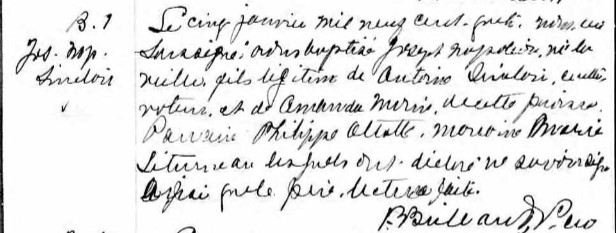 B. 1
Jos. Nap.
Sinclair
Le cinq janvier mil neuf cent quatre, nous curé
soussigné avons baptisé Joseph Napoléon, né la
veille, fils légitime de Antoine Sinclair, culti-
vateur, et de Amanda Morin, de cette paroisse.
Parrain Philippe marraine Marie
Létourneau lesquels ont déclaré ne savoir signer
ainsi que le père. Lecture faite.
Ptre